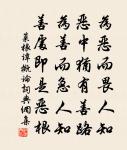 為惡而畏人知
惡中猶有善路
為善而急人知
善處即是惡根
菜根譚概論詞典集